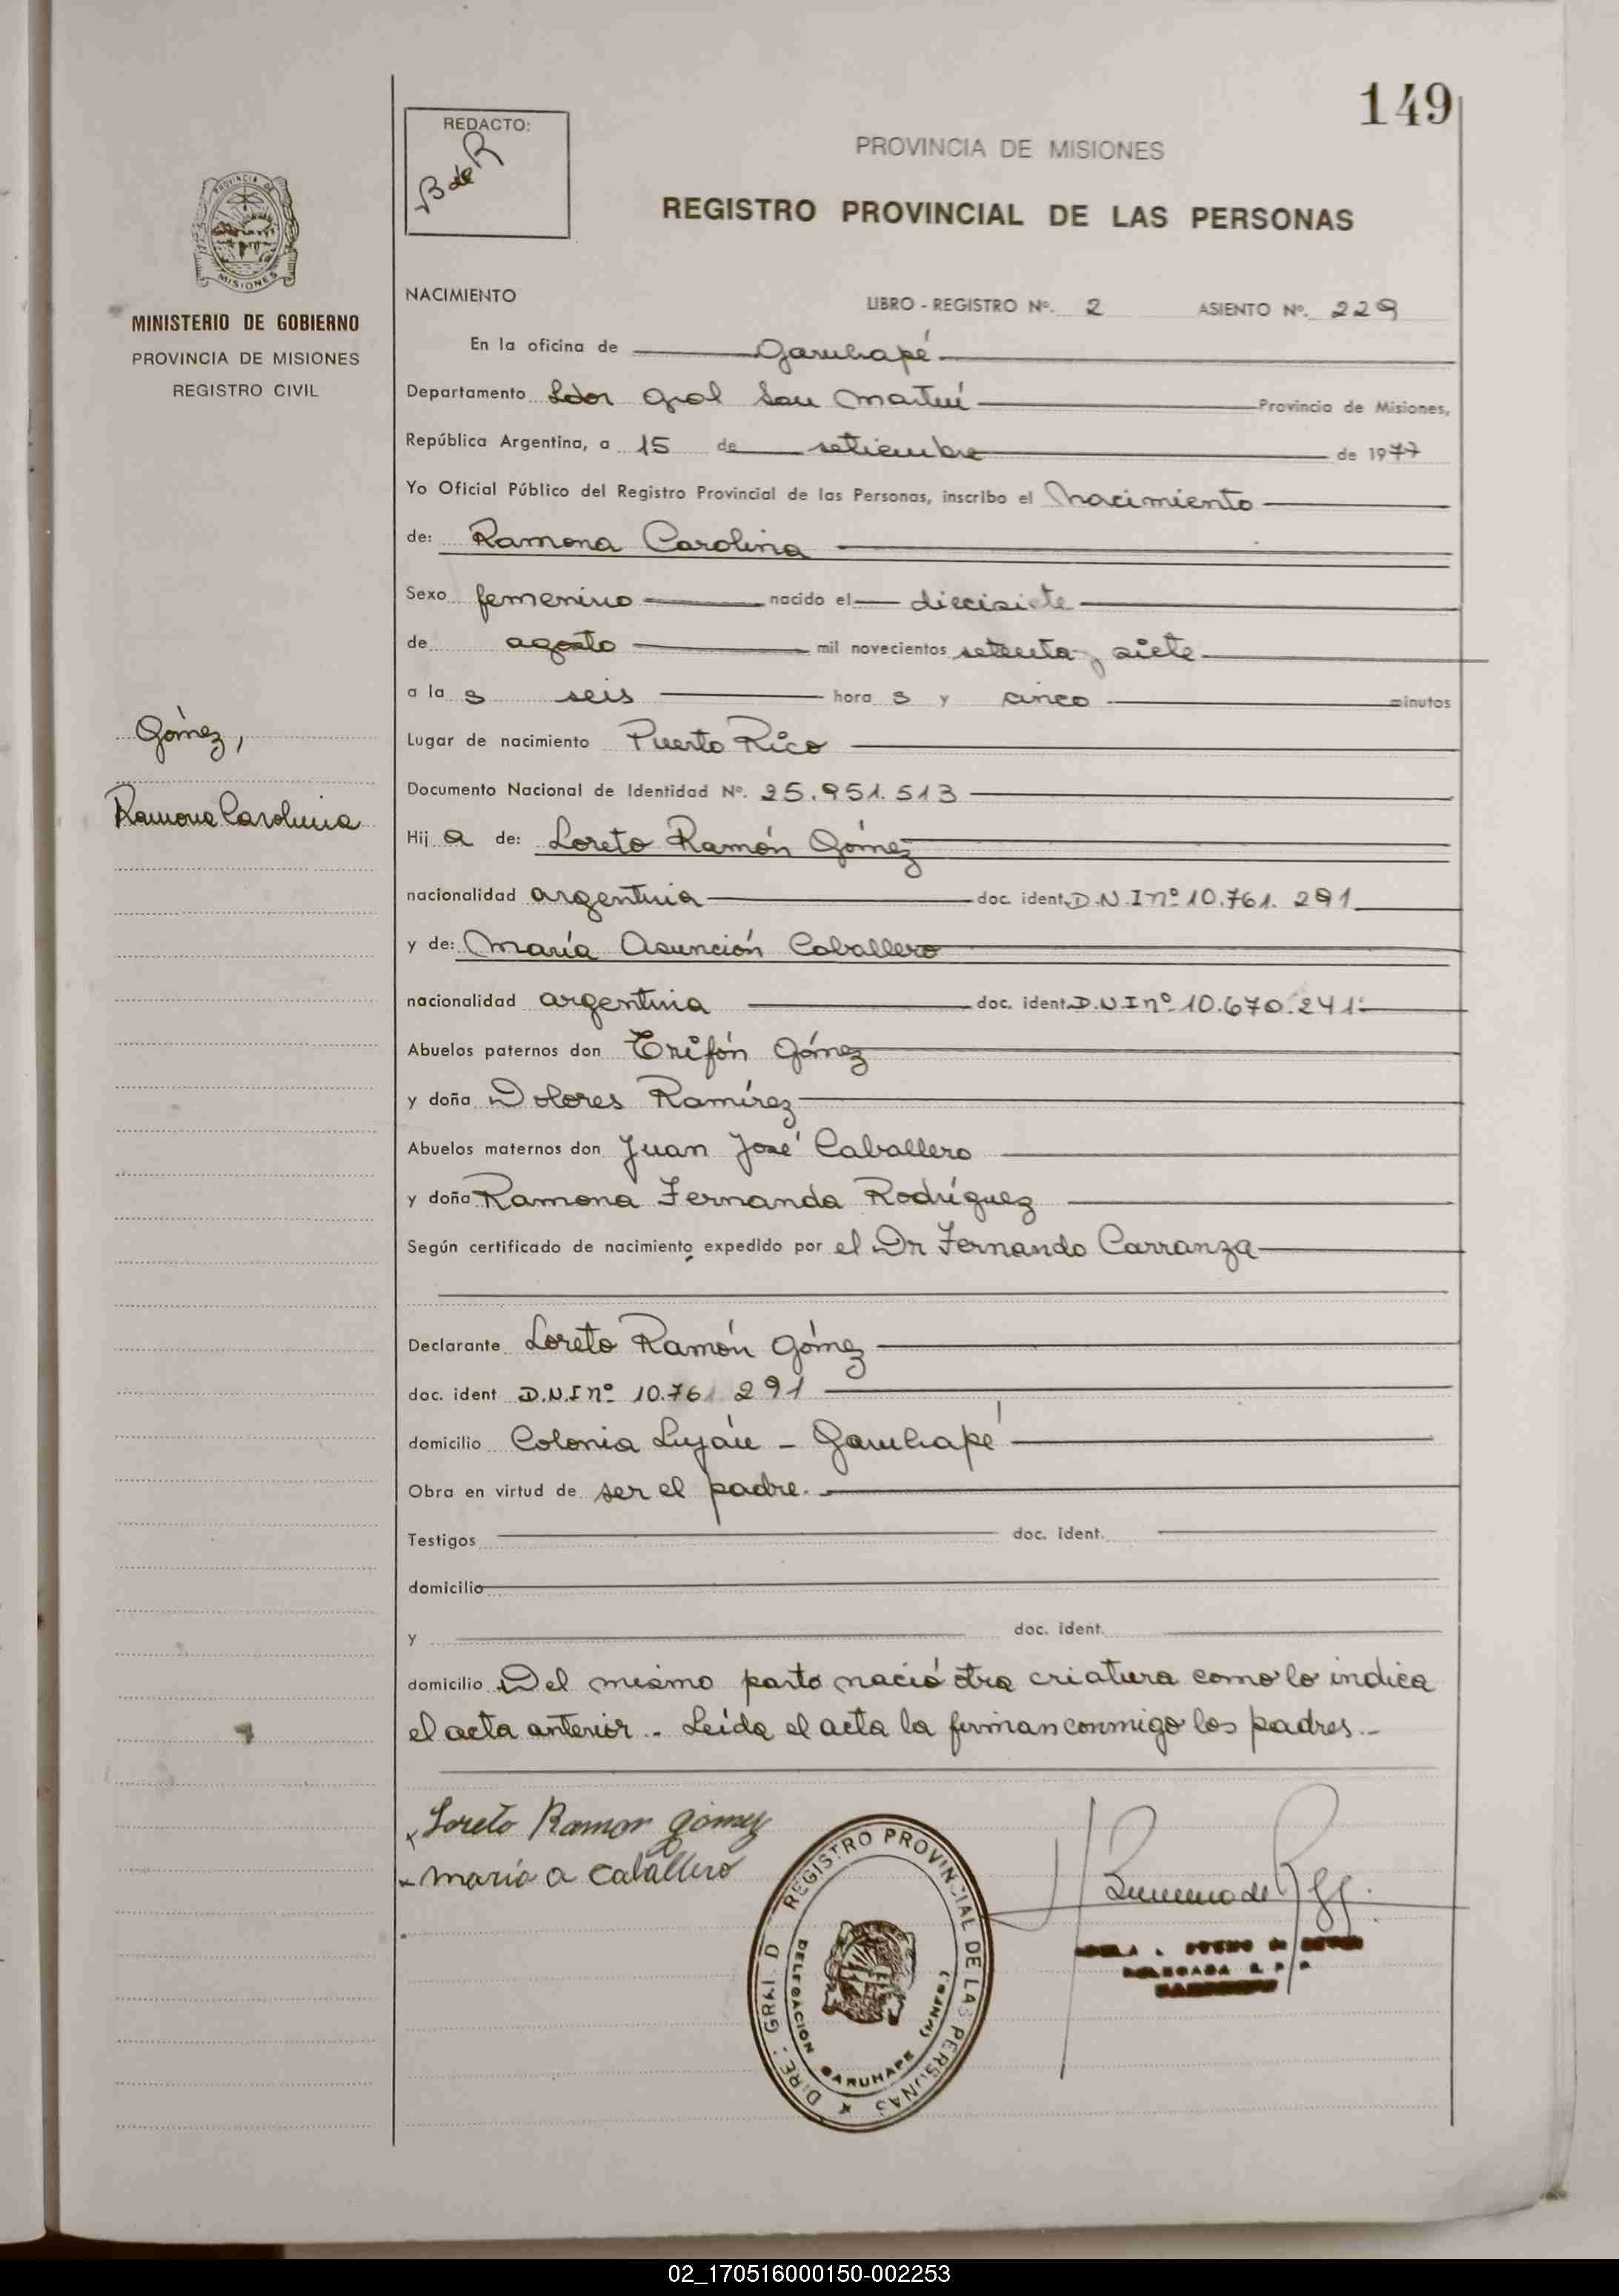 149
REDACTO:
B de R
PROVINCIA DE MISIONES
REGISTRO PROVINCIAL DE LAS PERSONAS
PROVINCIA DE
MISIONES
MINISTERIO DE GOBIERNO
PROVINCIA DE MISIONES
REGISTRO CIVIL
NACIMIENTO LIBRO - REGISTRO Nº. 2 ASIENTO Nº. 229
En la oficina de Garuhapé
Departamento Ldor Gral San Martín Provincia de Misiones,
República Argentina, a 15 de setiembre de 1977
Yo Oficial Público del Registro Provincial de las Personas, inscribo el Nacimiento
de: Ramona Carolina
Sexo femenino nacido el diecisiete
de agosto mil novecientos setenta y siete
a la s seis hora s y cinco minutos
Gómez,
Ramona Carolina
Lugar de nacimiento Puerto Rico
Documento Nacional de Identidad Nº. 25.951.513
Hij a de: Loreto Ramón Gómez
nacionalidad argentina doc. ident. D.N.I nº 10.761.291
y de: María Asunción Caballero
nacionalidad argentina doc. ident. D.N.I nº 10.670.241
Abuelos paternos don Trifón Gómez
y doña Dolores Ramírez
Abuelos maternos don Juan José Caballero
y doña Ramona Fernanda Rodríguez
Según certificado de nacimiento expedido por el Dr Fernando Carranza
Declarante Loreto Ramón Gómez
doc. ident D.N.I nº 10.761 291
domicilio Colonia Luján - Garuhapé
Obra en virtud de ser el padre.
Testigos doc. ident.
domicilio
y doc. ident.
domicilio Del mismo parto nació otra criatura como lo indica
el acta anterior.. Leída el acta la firman conmigo los padres.-
Loreto Ramon Gómez
maría a caballero
DIRE: GRAL D REGISTRO PROVINCIAL DE LAS PERSONAS
DELEGACION GARUHAPE (MNES.)
02_170516000150-002253